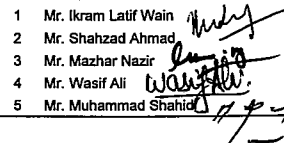 1 Mr. Ikram Latif Wain
2 Mr. Shahzad Ahmad
3 Mr. Mazhar Nazir
4 Mr. Wasif Ali Wasif Ali.
5 Mr. Muhammad Shahid